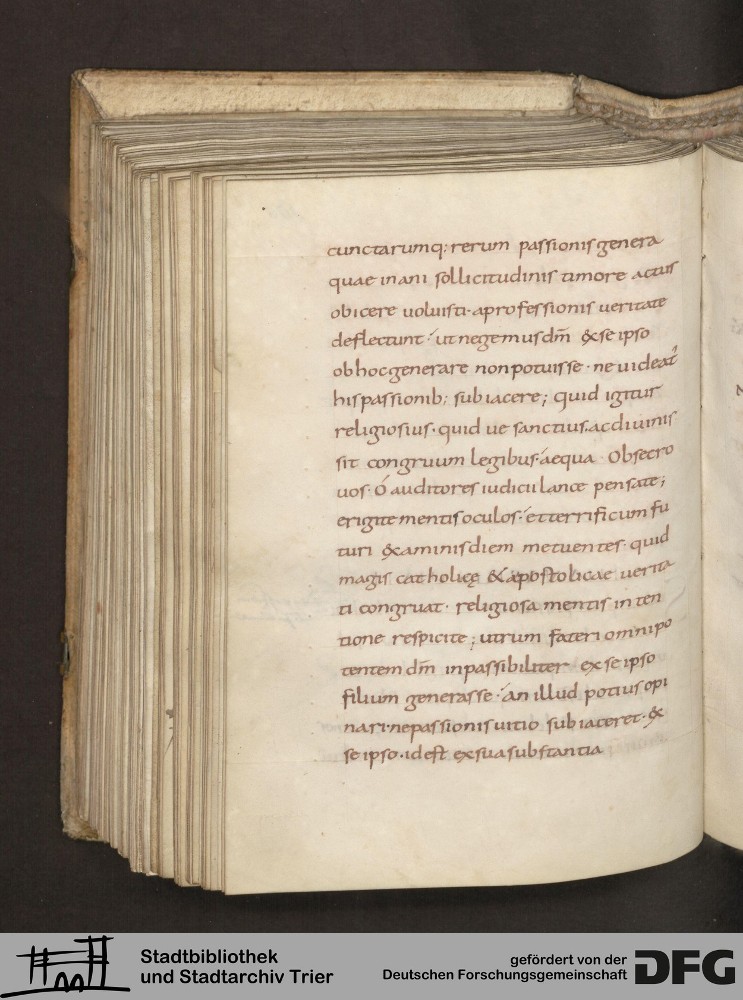 cunctarumq; rerum passionis genera
quae inani sollicitudinis timore actus
obicere uoluisti· a professionis ueritate
deflectunt· ut negemus dm̅ & se ipso
ob hoc generare non potuisse· ne uideat᷑
his passionib; subiacere; quid igitur
religiosius· quid ue sanctius· ac diuinis
sit congruum legibus· aequa· Obsecro
uos· O auditores iudicii lance pensate;
erigite mentis oculos· et terrificum fu
turi &aminis diem metuentes· quid
magis catholicę & apostolicae uerita
ti congruat· religiosa mentis inten
tione respicite; utrum fateri omnipo
tentem dm̅ inpassibiliter ex se ipso
filium generasse· an illud potius opi
nari· ne passionis uitio subiaceret· &
se ipso· id est ex sua substantia
Stadtbibliothek
und Stadtarchiv Trier
gefördert von der
Deutschen Forschungsgemeinschaft
DFG